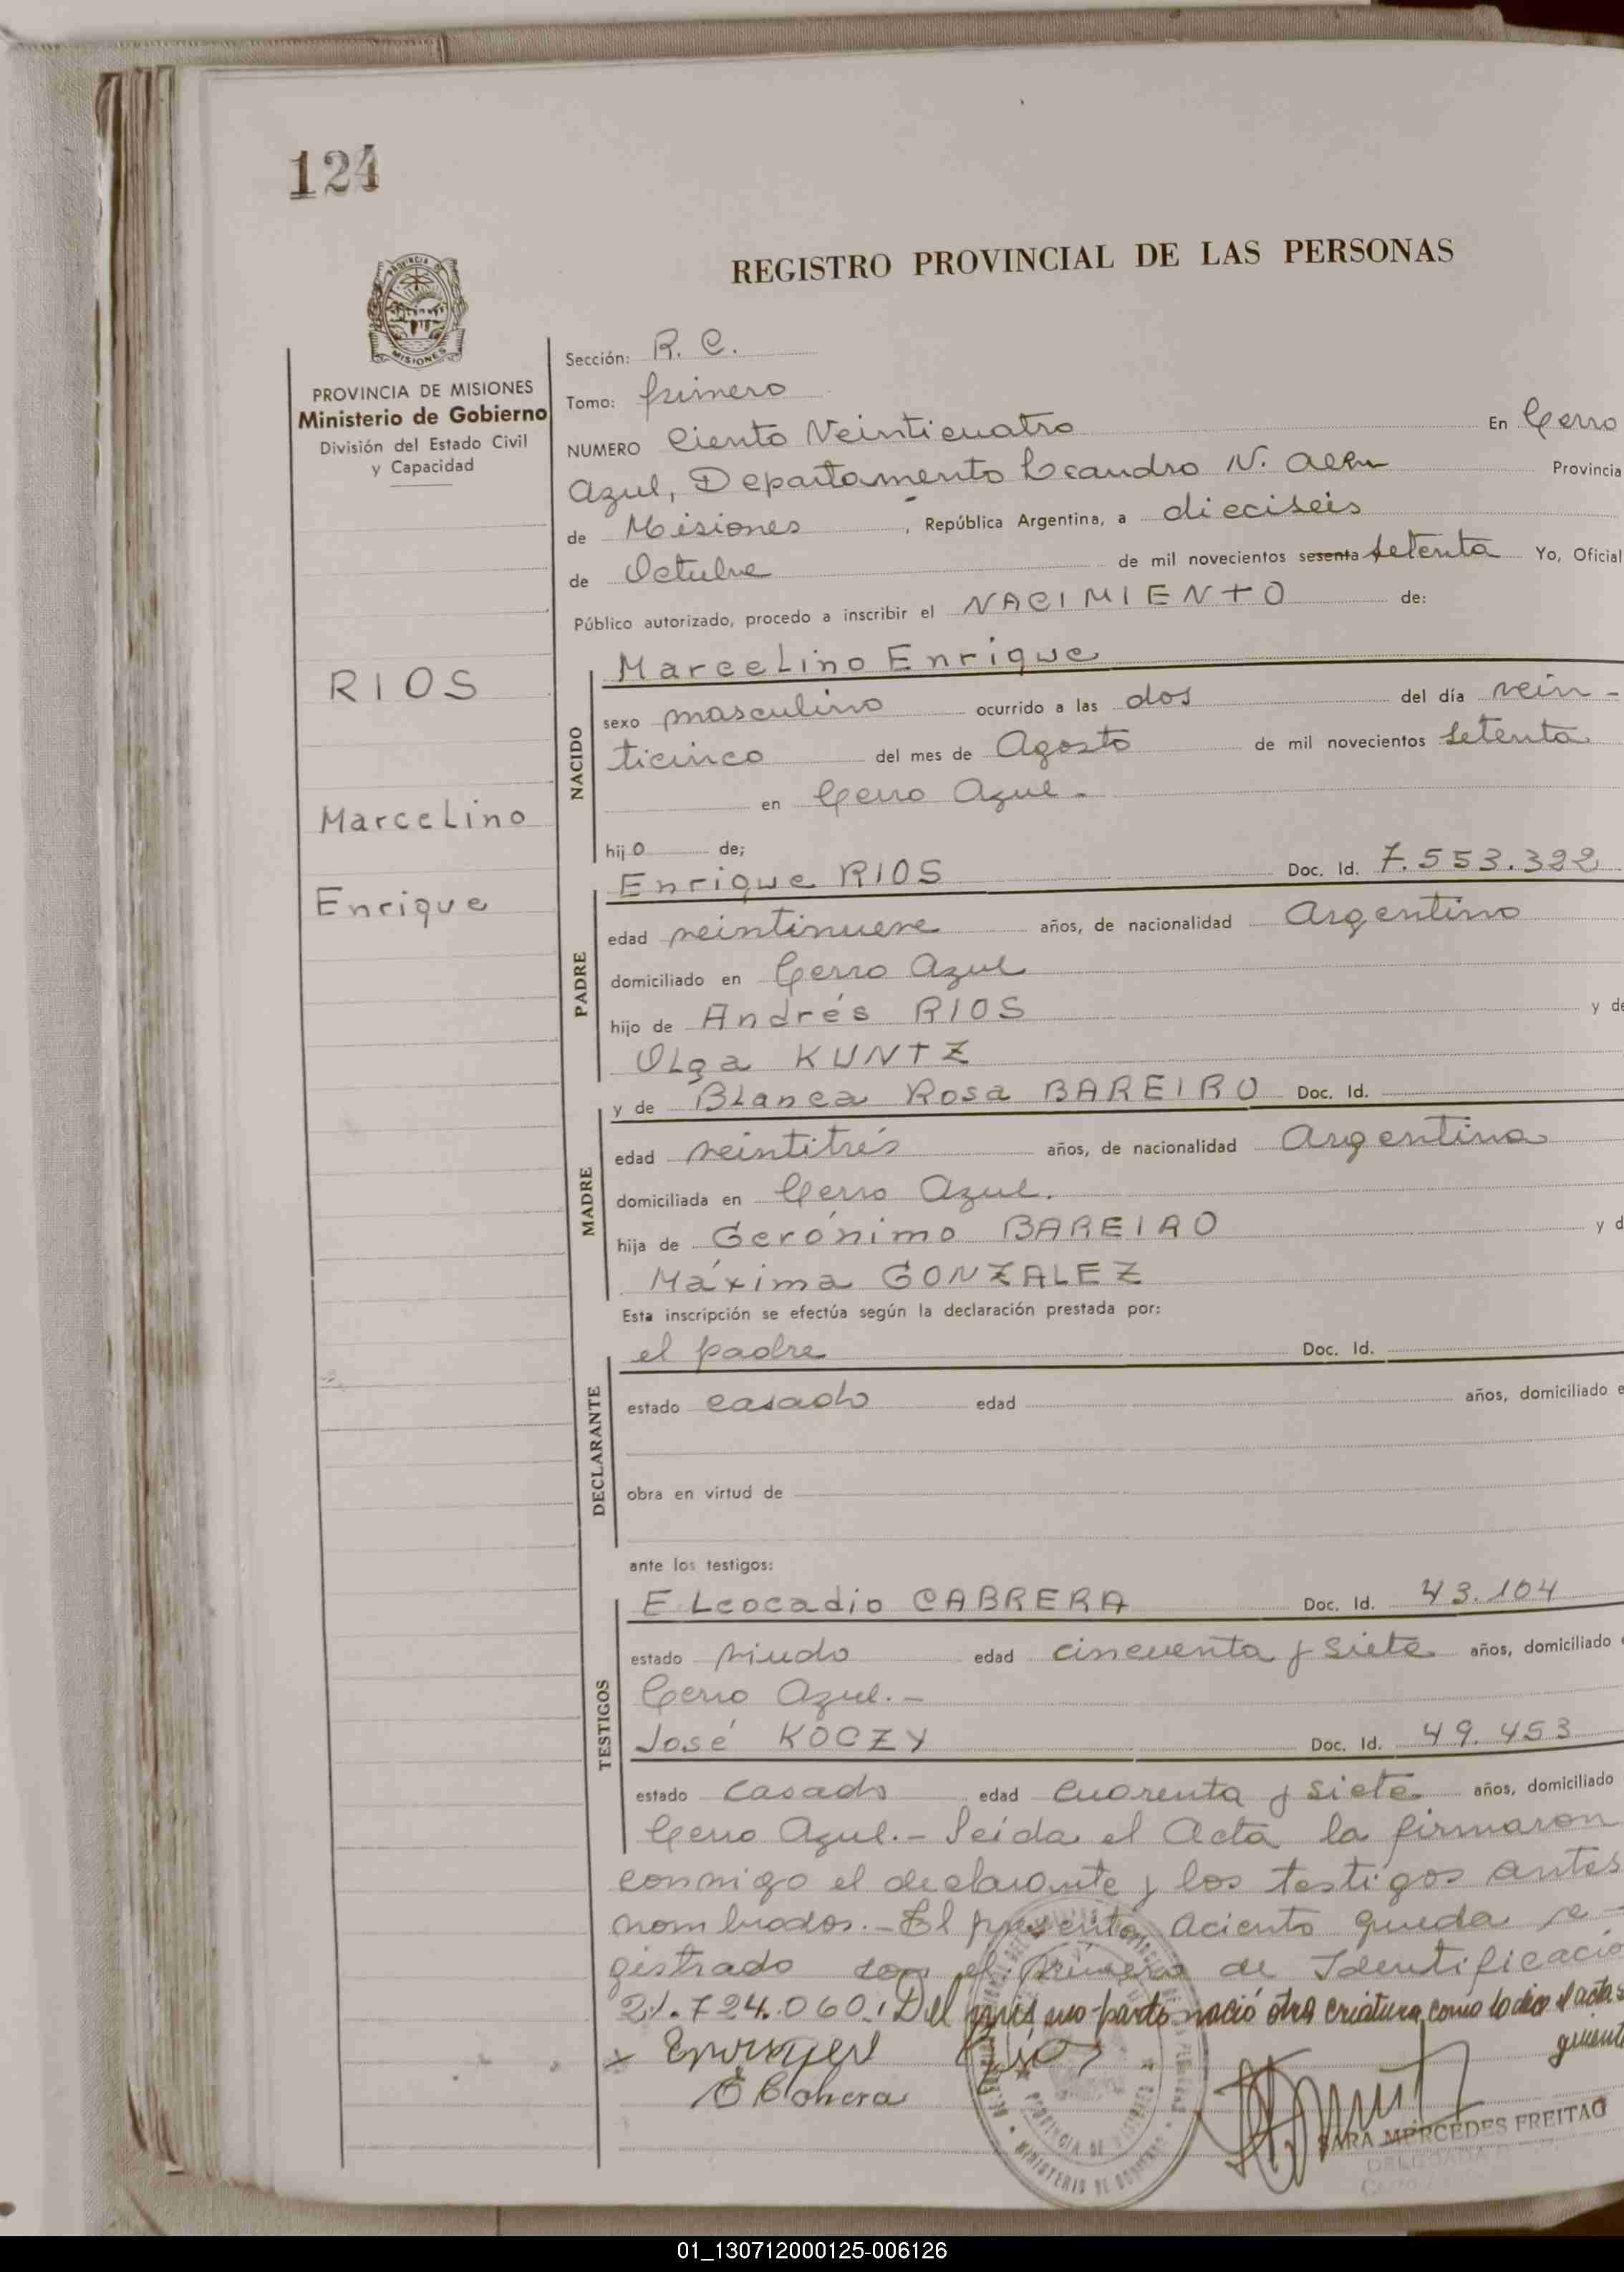 124
REGISTRO PROVINCIAL DE LAS PERSONAS
PROVINCIA DE
MISIONES
PROVINCIA DE MISIONES
Ministerio de Gobierno
División del Estado Civil
y Capacidad
RIOS
Marcelino
Enrique
Sección: R. C.
Tomo: Primero
NUMERO Ciento Veinticuatro En Cerro
Azul, Departamento Leandro N. Alem Provincia
de Misiones, República Argentina, a dieciseis
de Octubre de mil novecientos sesenta setenta Yo, Oficial
Público autorizado, procedo a inscribir el NACIMIENTO de:
NACIDO
Marcelino Enrique
sexo masculino ocurrido a las dos del día vein-
ticinco del mes de Agosto de mil novecientos setenta
en Cerro Azul.-
hijo de;
PADRE
Enrique RIOS Doc. Id. 7.553.322
edad veintinueve años, de nacionalidad Argentino
domiciliado en Cerro Azul
hijo de Andrés RIOS y de
Olga KUNTZ
MADRE
y de Blanca Rosa BAREIRO Doc. Id.
edad veintitrés años, de nacionalidad Argentina
domiciliada en Cerro Azul.
hija de Gerónimo BAREIRO y d
Máxima GONZALEZ
Esta inscripción se efectúa según la declaración prestada por:
DECLARANTE
el padre Doc. Id.
estado casado edad años, domiciliado e
obra en virtud de
ante los testigos:
TESTIGOS
ELeocadio CABRERA Doc. Id. 43.104
estado viudo edad cincuenta y siete años, domiciliado
Cerro Azul.-
José KOCZY Doc. Id. 49.453
estado casado edad cuarenta y siete años, domiciliado
Cerro Azul.- Leída el Acta la firmaron
conmigo el declarante y los testigos antes
nombrados.- El presente aciento queda re-
gistrado con el número de Identificacio
21.724.060. Del mismo parto nació otra criatura como lo dice el acta si
guient
x Enrique Rios
E Cabrera
MINISTERIO DE GOBIERNO
PROVINCIA DE MISIONES
SARA MERCEDES FREITAG
DELEGADA
Cerro
01_130712000125-006126